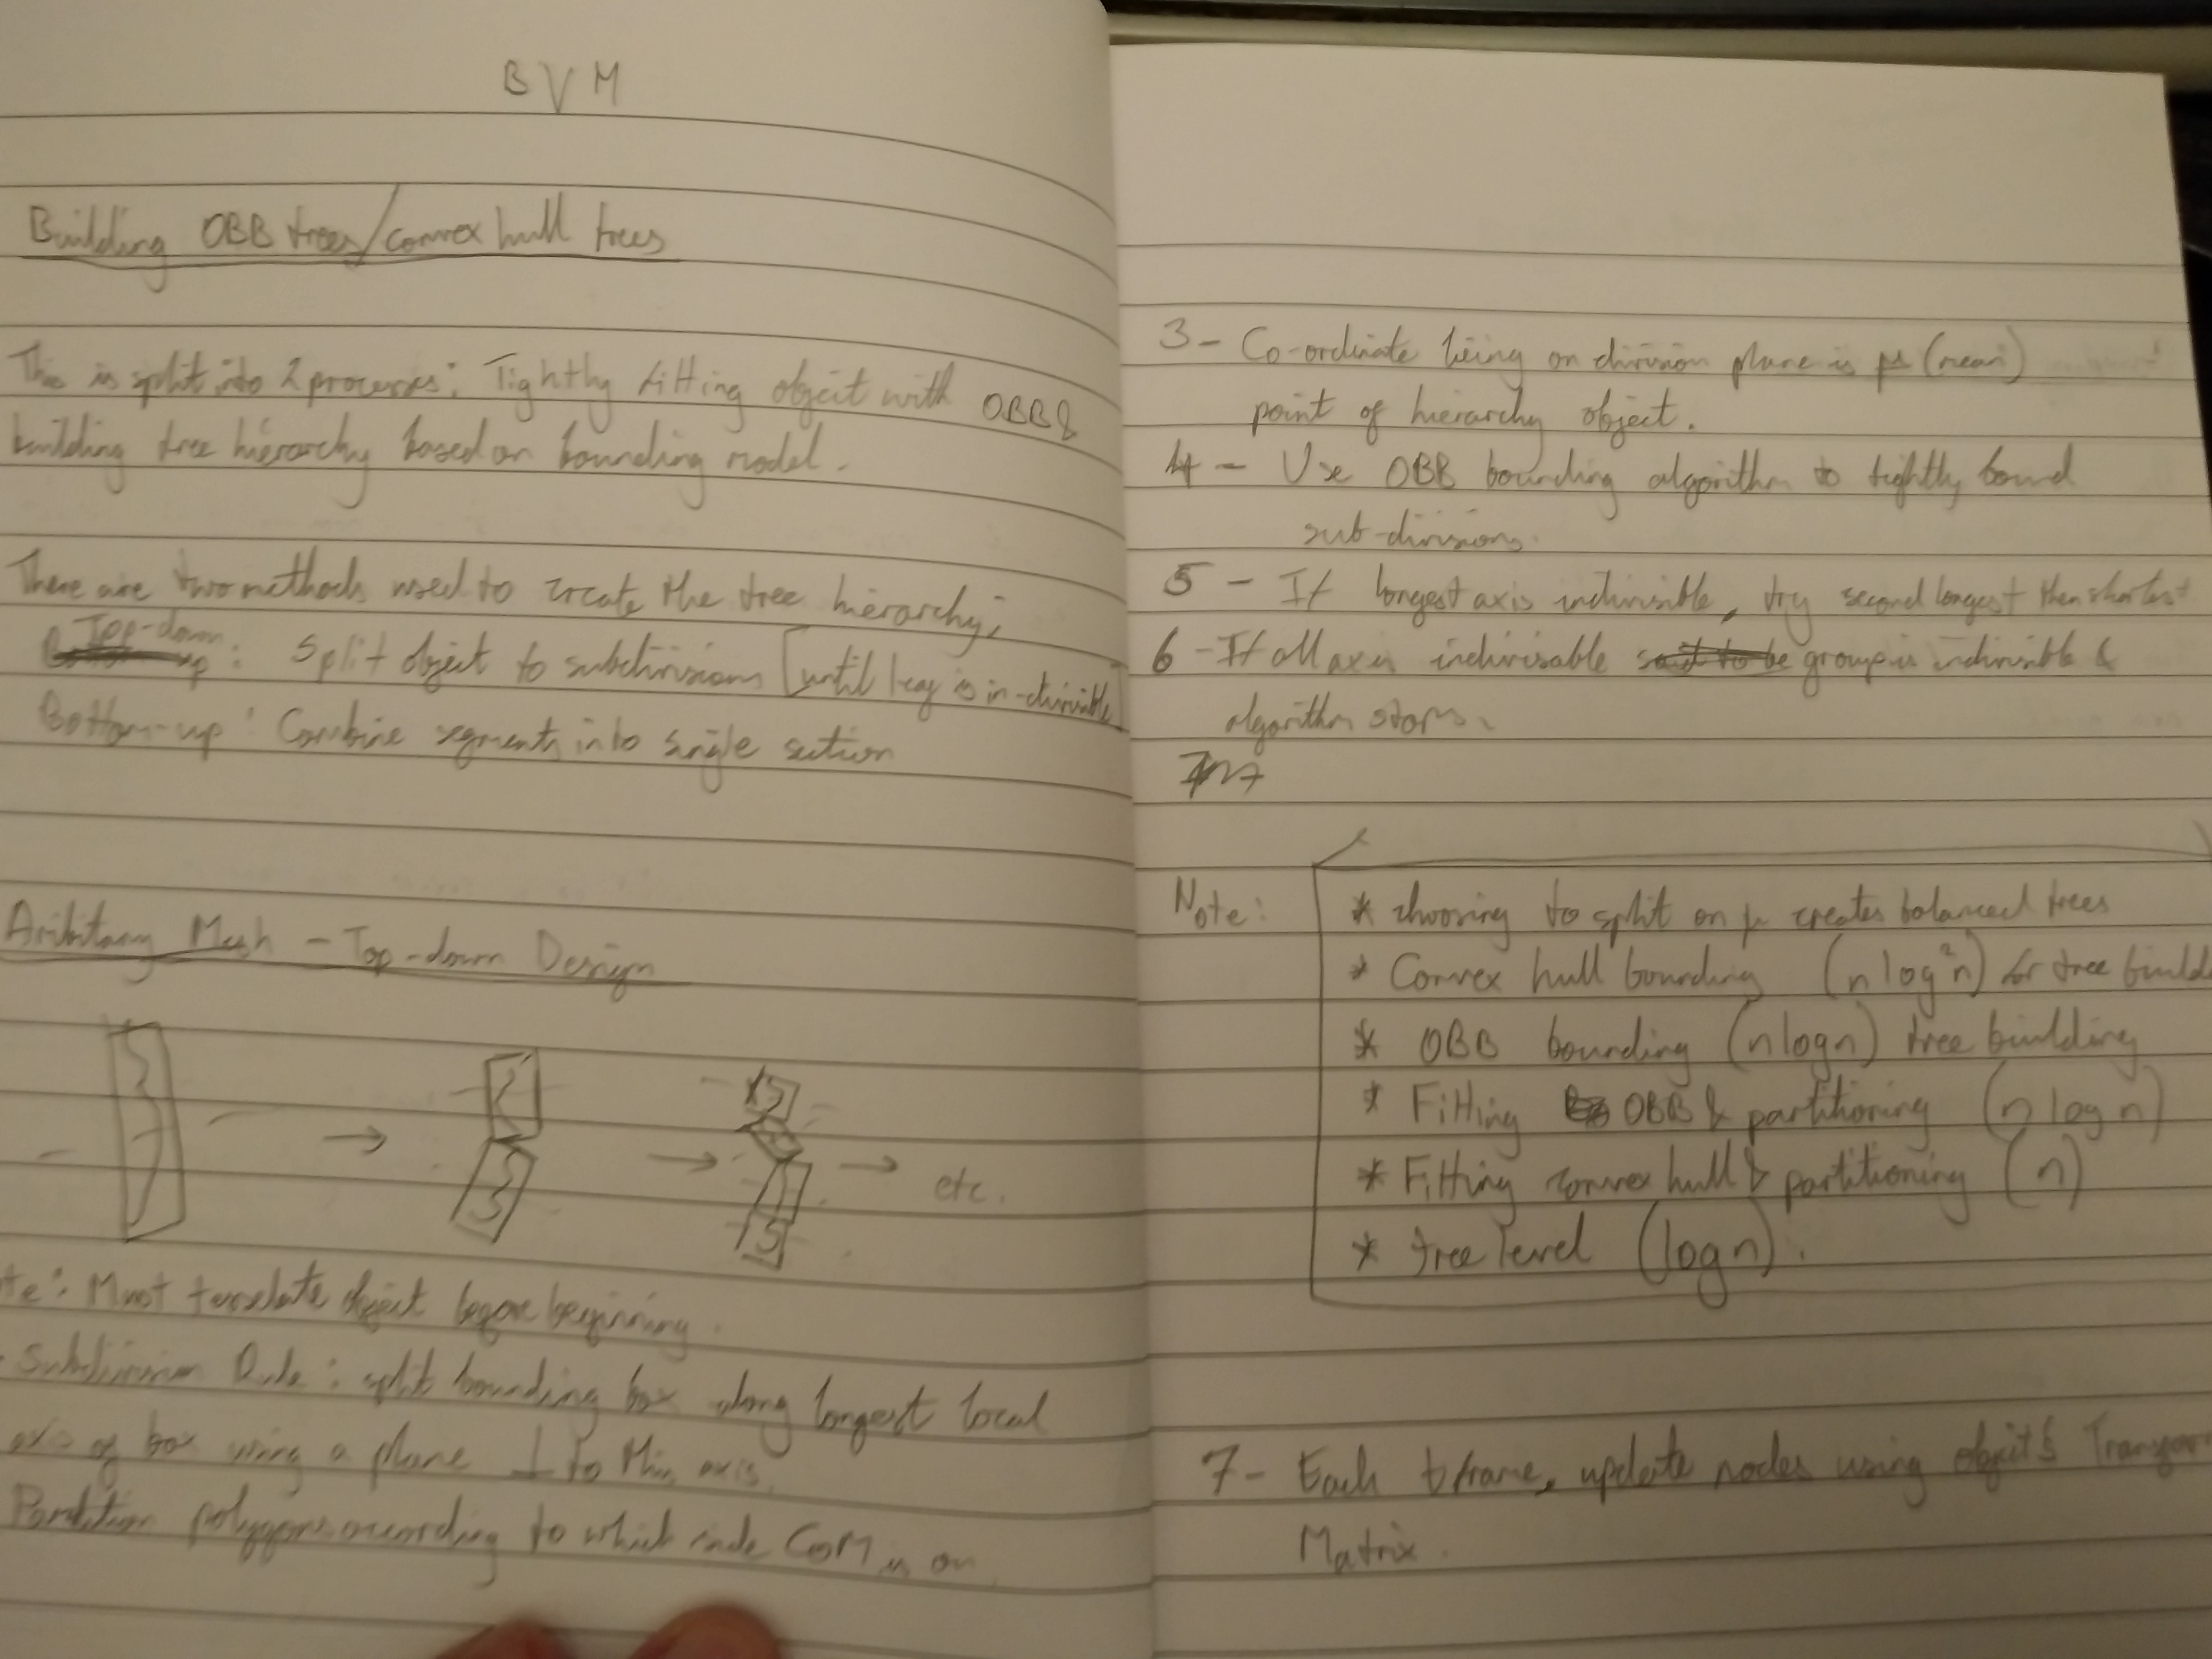 BVH
Building OBB trees/convex hull trees
This is split into 2 processes: Tightly fitting object with OBB &
building tree hierarchy based on bounding model.
There are two methods used to create the tree hierarchy;
Top-down : Split object to subdivisions [until leaf is in-divisible]
Bottom-up : Combine segments into single section
Aribitary Mesh - Top-down Design
etc.
te: Must translate object before beginning.
Subdivision Rule: split bounding box along longest local
axis of box using a plane ⊥ to this axis.
Partition polygons according to which side CoM is on
3 - Co-ordinate lieing on division plane is μ (mean)
point of hierarchy object.
4 - Use OBB bounding algorithm to tightly bound
sub-divisions.
5 - If longest axis indivisible, try second longest then shortest
6 - If all axis indivisable group is indivisible &
algorithm stops.
Note:
* choosing to split on μ creates balanced trees
* Convex hull bounding (n log²n) for tree build
* OBB bounding (nlogn) tree building
* Fitting OBB & partitioning (n log n)
* Fitting convex hull & partitioning (n)
* tree level (logn).
7 - Each frame, update nodes using object's Transfor
Matrix.